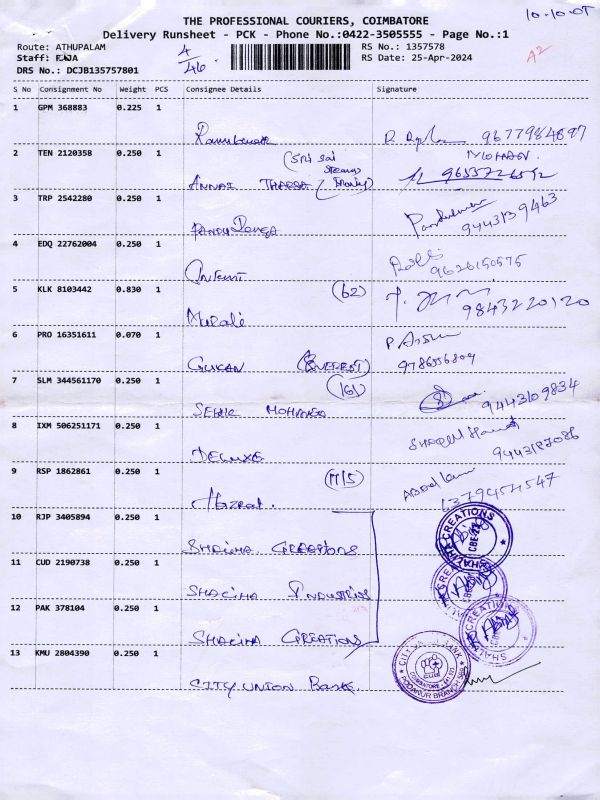 THE PROFESSIONAL COURIERS, COIMBATORE
Delivery Runsheet - PCK - Phone No.:0422-3505555 - Page No.:1
10-10-07
Route: ATHUPALAM
Staff: RAJA
DRS No.: DCJB135757801
4/46
RS No.: 1357578
RS Date: 25-Apr-2024
A2
S No Consignment No Weight PCS Consignee Details Signature
1 GPM 368883 0.225 1
9677984897
2 TEN 2120358 0.250 1
(Sri Sai
MOHAN
ANNAI
3 TRP 2542280 0.250 1
9443139463
PANDU Ranga
4 EDQ 22762004 0.250 1
9626150575
5 KLK 8103442 0.830 1
(62)
9843220120
Murali
6 PRO 16351611 0.070 1
9786556804
GUKAN (EVEREST)
7 SLM 344561170 0.250 1
(161)
9443109834
8 IXM 506251171 0.250 1
9443187086
DELUXE
9 RSP 1862861 0.250 1
(17/5)
Abdul
6379454547
10 RJP 3405894 0.250 1
SHACIHA CREATIONS
11 CUD 2190738 0.250 1
SHACIHA INDUSTRIES
12 PAK 378104 0.250 1
SHACIHA CREATIONS
13 KMU 2804390 0.250 1
CITY UNION BANK
PODANUR BRANCH